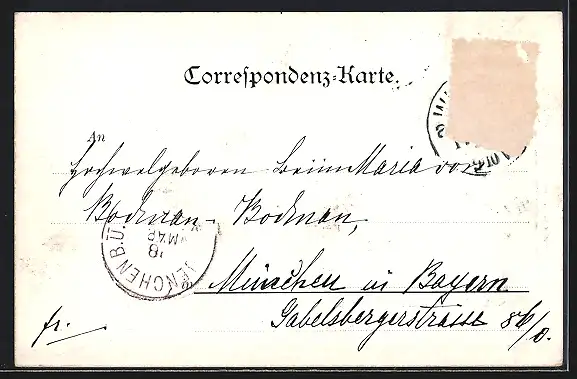 Correspondenz-Karte.
An
Hochwolgeboren Maria von
Bodman-Bodman,
MÜNCHEN B.Ü.
8 MÄR
in
München in Bayern
Gabelsbergerstrasse 86/0.
fr.